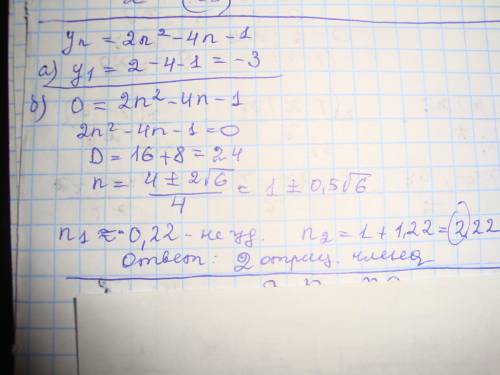 yn = 2n² - 4n - 1
а) y1 = 2 - 4 - 1 = -3
б) 0 = 2n² - 4n - 1
2n² - 4n - 1 = 0
D = 16 + 8 = 24
n = (4 ± 2√6)/4 = 1 ± 0,5√6
n1 ≈ -0,22 - не уд. n2 = 1 + 1,22 = 2,22
Ответ: 2 отриц. члена